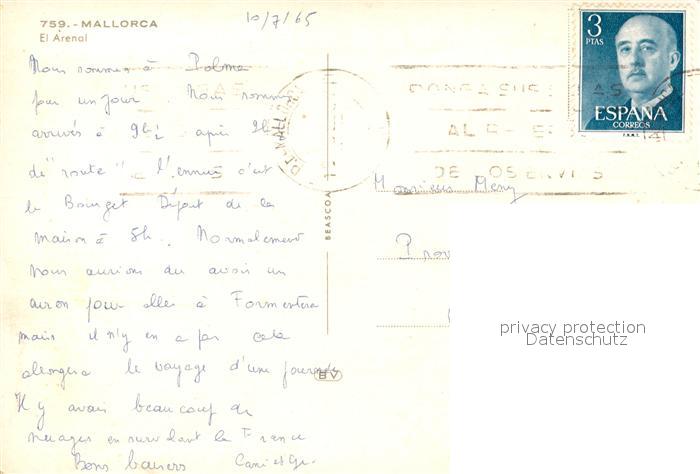 759.- MALLORCA
El Arenal
10/7/65
Nous sommes à Palma
pour un jour. Nous sommes
arrivés à 9h½ après 2h
de "route" l'ennui c'est
le Bourget Départ de la
maison à 5h. Normalement
nous aurions du avoir un
avion pour aller à Formentera
mais il n'y en a pas cela
allongera le voyage d'une journée
Il y avait beaucoup de
nuages en survolant la France
Bons baisers
BEASCOA
BV
3
PTAS
ESPAÑA
CORREOS
F.N.M.T.
Monsieur
privacy protection
Datenschutz